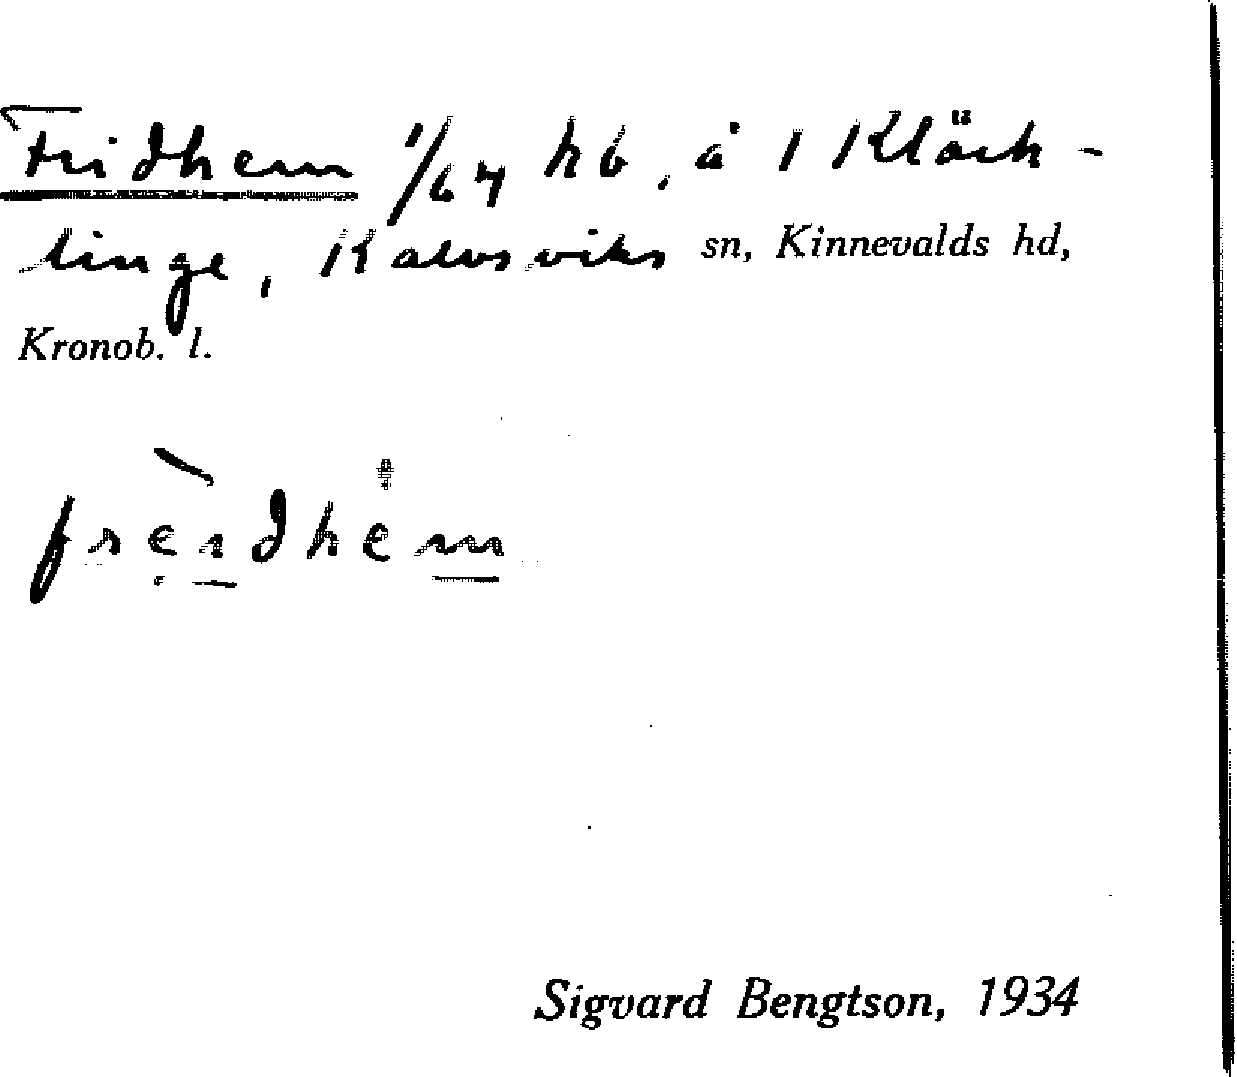 Fridhem 1/64 hb, å 1 Kläck-
linge, Kalvsviks sn, Kinnevalds hd,
Kronob. l.
Sigvard Bengtson, 1934